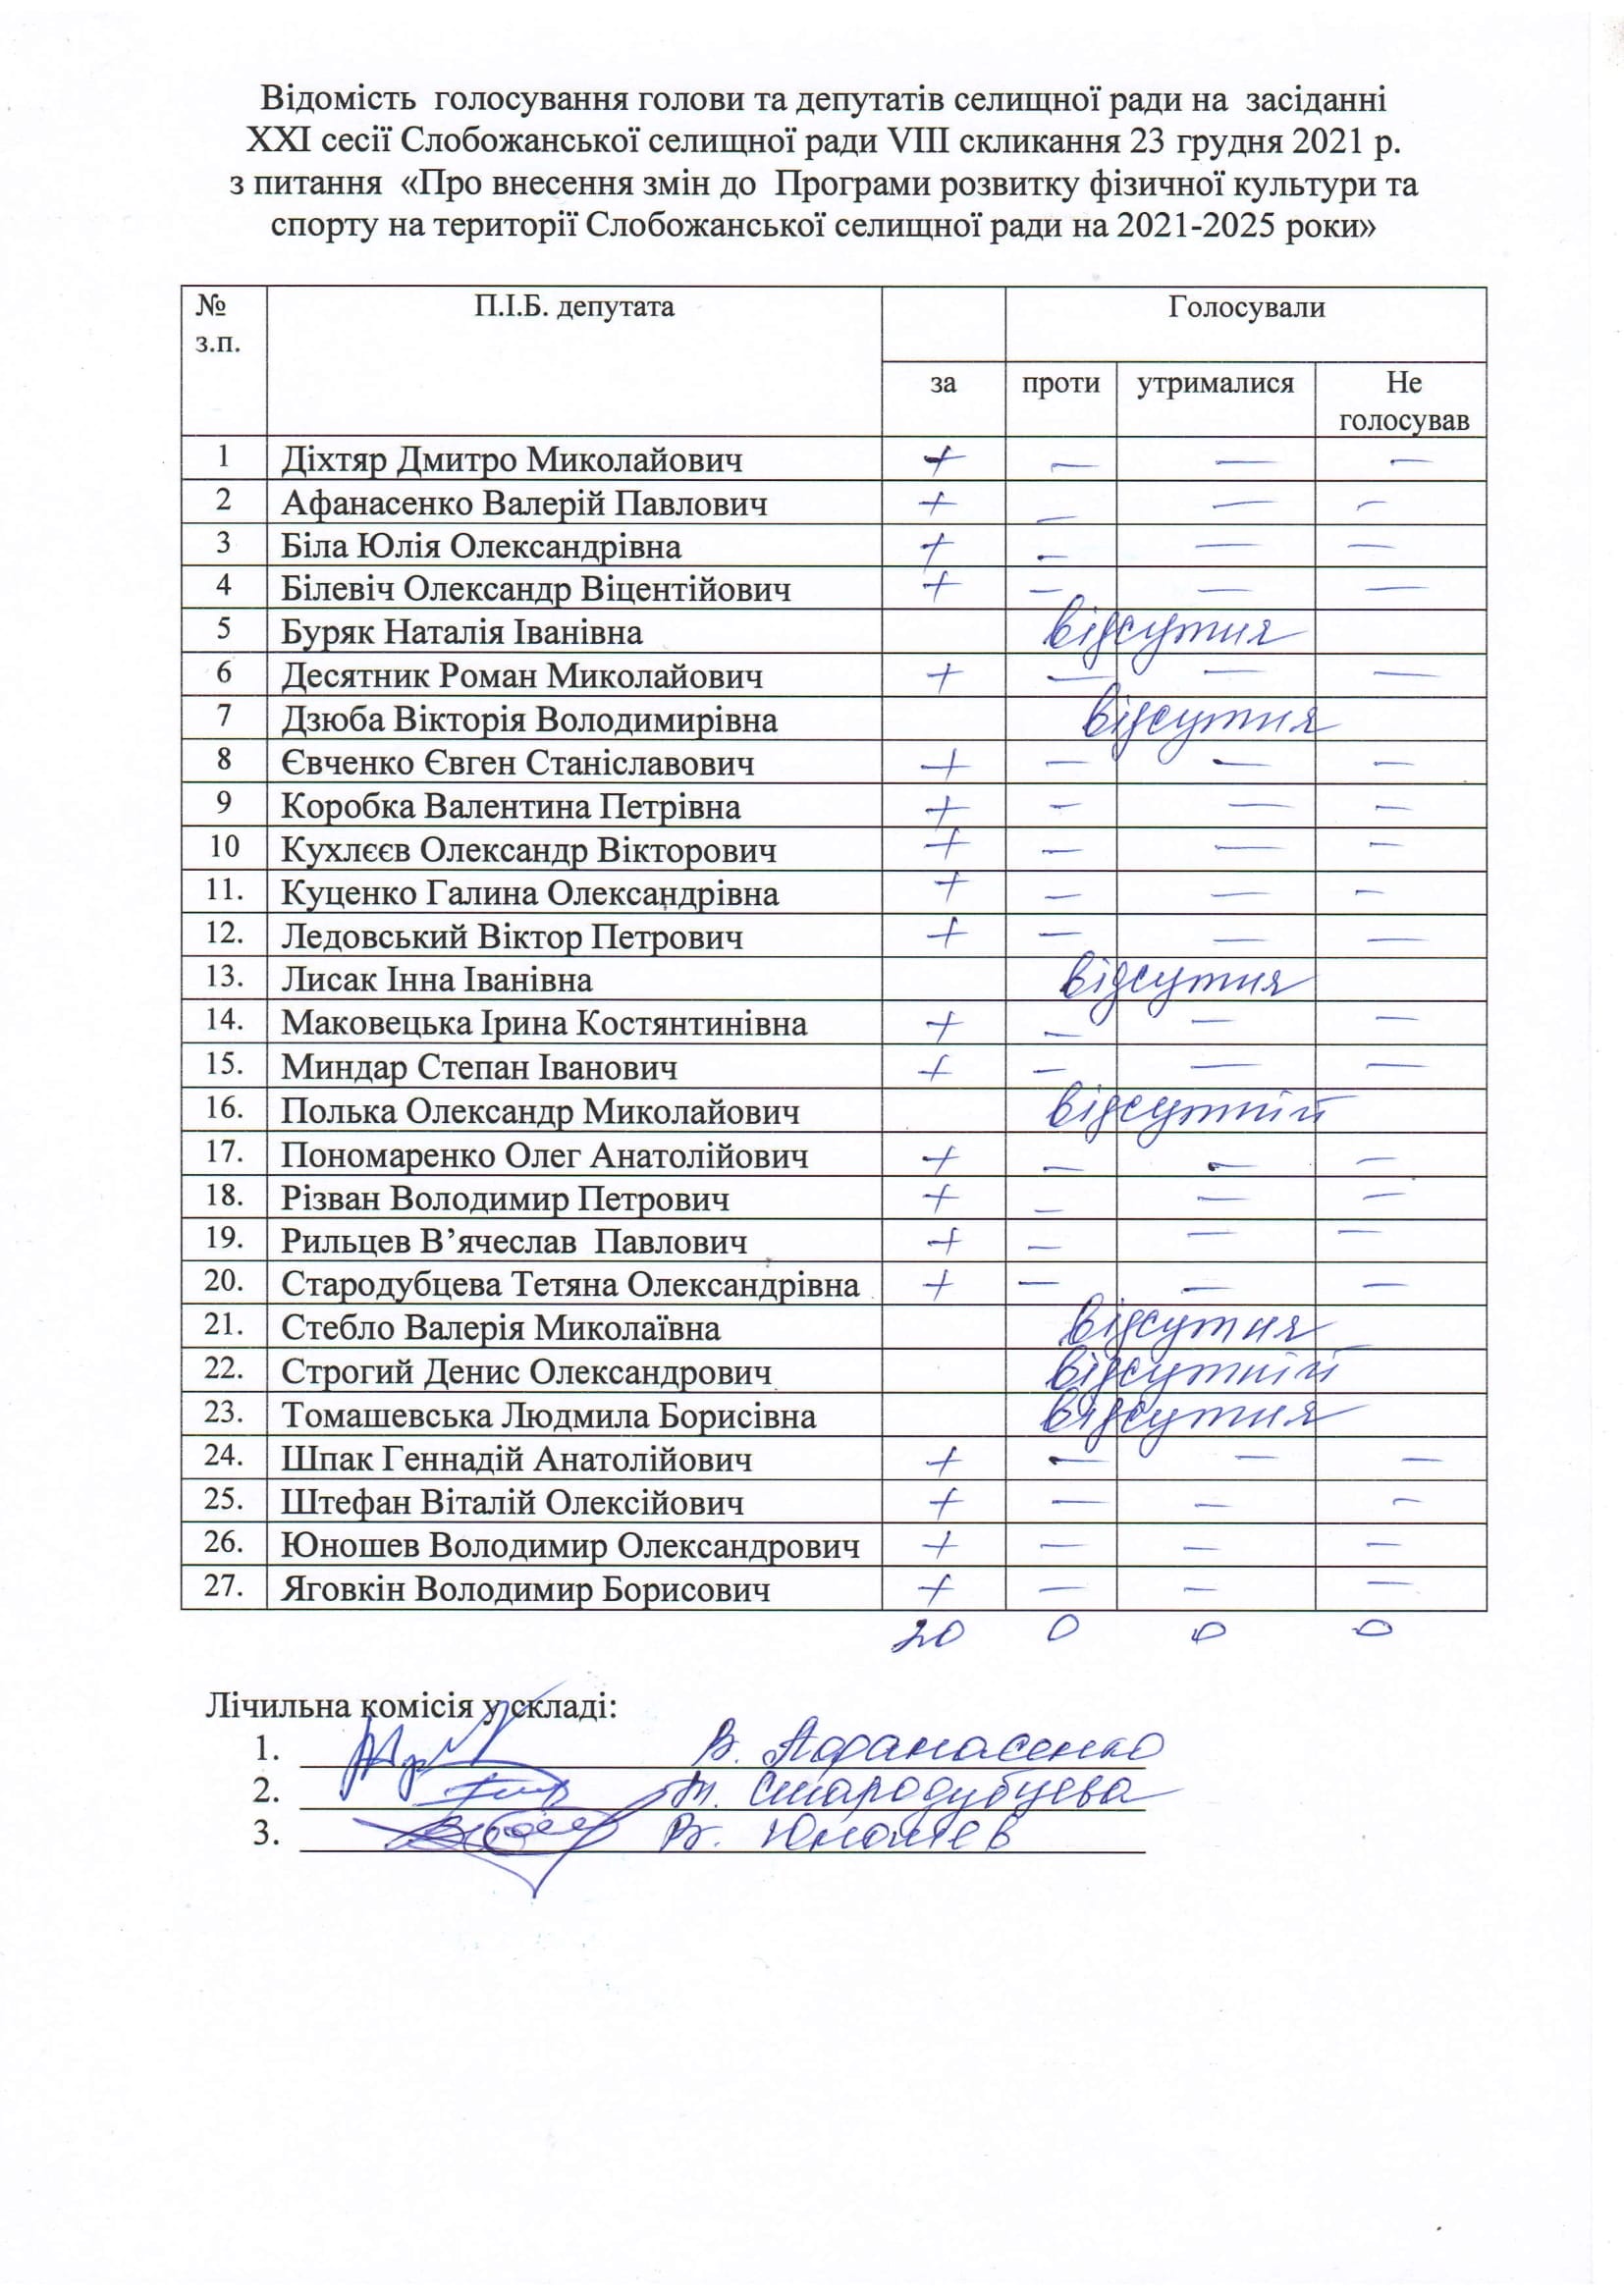 Відомість голосування голови та депутатів селищної ради на засіданні
XXI сесії Слобожанської селищної ради VIII скликання 23 грудня 2021 р.
з питання «Про внесення змін до Програми розвитку фізичної культури та
спорту на території Слобожанської селищної ради на 2021-2025 роки»
№ з.п. П.І.Б. депутата Голосували
за проти утрималися Не голосував
1 Діхтяр Дмитро Миколайович + — — —
2 Афанасенко Валерій Павлович + — — —
3 Біла Юлія Олександрівна + — — —
4 Білевіч Олександр Віцентійович + — — —
5 Буряк Наталія Іванівна відсутня
6 Десятник Роман Миколайович + — — —
7 Дзюба Вікторія Володимирівна відсутня
8 Євченко Євген Станіславович + — — —
9 Коробка Валентина Петрівна + — — —
10 Кухлєєв Олександр Вікторович + — — —
11. Куценко Галина Олександрівна + — — —
12. Ледовський Віктор Петрович + — — —
13. Лисак Інна Іванівна відсутня
14. Маковецька Ірина Костянтинівна + — — —
15. Миндар Степан Іванович + — — —
16. Полька Олександр Миколайович відсутній
17. Пономаренко Олег Анатолійович + — — —
18. Різван Володимир Петрович + — — —
19. Рильцев В’ячеслав Павлович + — — —
20. Стародубцева Тетяна Олександрівна + — — —
21. Стебло Валерія Миколаївна відсутня
22. Строгий Денис Олександрович відсутній
23. Томашевська Людмила Борисівна відсутня
24. Шпак Геннадій Анатолійович + — — —
25. Штефан Віталій Олексійович + — — —
26. Юношев Володимир Олександрович + — — —
27. Яговкін Володимир Борисович + — — —
20 0 0 0
Лічильна комісія у складі:
1. В. Афанасенко
2. Т. Стародубцева
3. В. Юношев